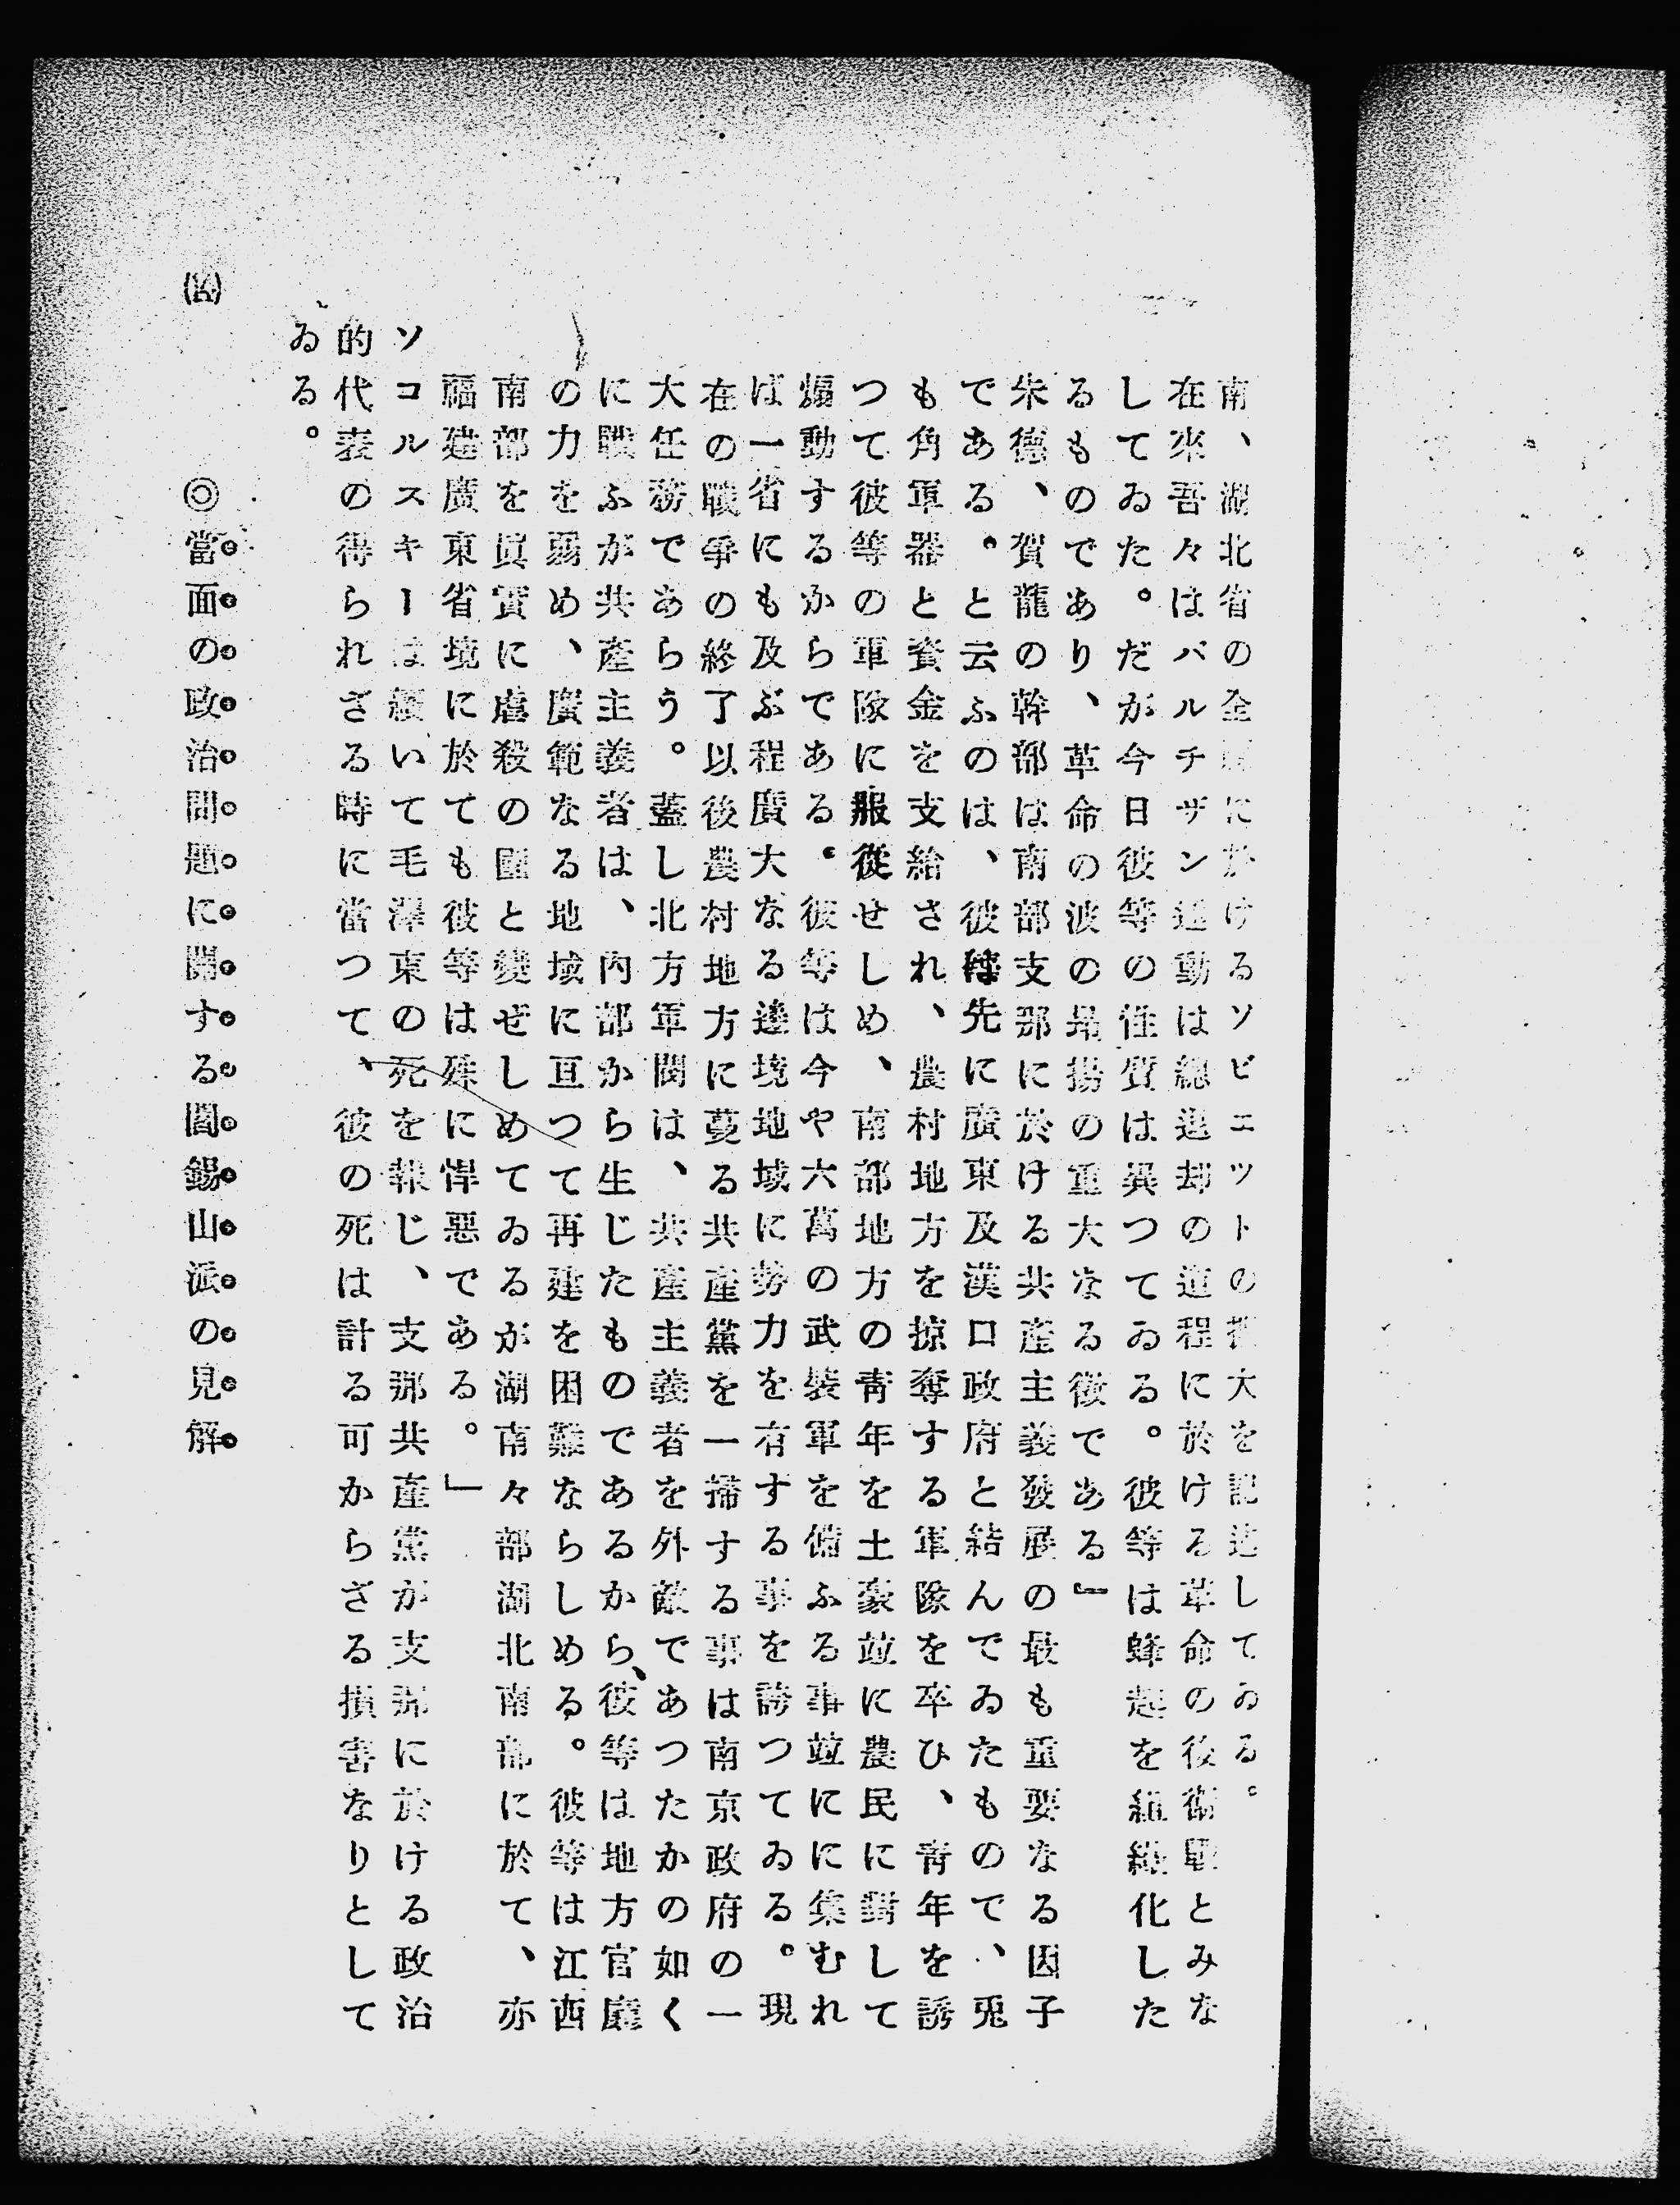 南、湖北省の全に於けるソビエットの擴大を記述してゐる。
在來吾々はバルチザン運動は總退却の道程に於ける革命の後衛戰とみな
してゐた。だが今日彼等の性質は異つてゐる。彼等は蜂起を組織化した
るものであり、革命の波の昂揚の重大なる徴である』
朱德、賀龍の幹部は南部支那に於ける共產主義發展の最も重要なる因子
である。と云ふのは、彼は先に廣東及漢口政府と結んでゐたもので、兎
も角軍器と資金を支給され、農村地方を掠奪する軍隊を率ひ、青年を誘
つて彼等の軍隊に服從せしめ、南部地方の靑年を土豪竝に農民に對して
煽動するからである。彼等は今や六萬の武裝軍を備ふる事竝にに集むれ
ば一省にも及ぶ程廣大なる邊境地域に勢力を有する事を誇つてゐる。現
在の戰爭の終了以後農村地方に蔓る共產黨を一掃する事は南京政府の一
大任務であらう。蓋し北方軍閥は、共產主義者を外敵であつたかの如く
に戰ふが共產主義者は、內部から生じたものであるから、彼等は地方官廳
の力を弱め、廣範なる地域に亘つて再建を困難ならしめる。彼等は江西
南部を眞實に虐殺の園と變ぜしめてゐるが湖南々部湖北南部に於て、亦
福建廣東省境に於ても彼等は殊に悍惡である。」
ソコルスキーは續いて毛澤東の死を報じ、支那共產黨が支那に於ける政治
的代表の得られざる時に當つて、彼の死は計る可からざる損害なりとして
ゐる。
◎當面の政治問題に關する閻錫山派の見解